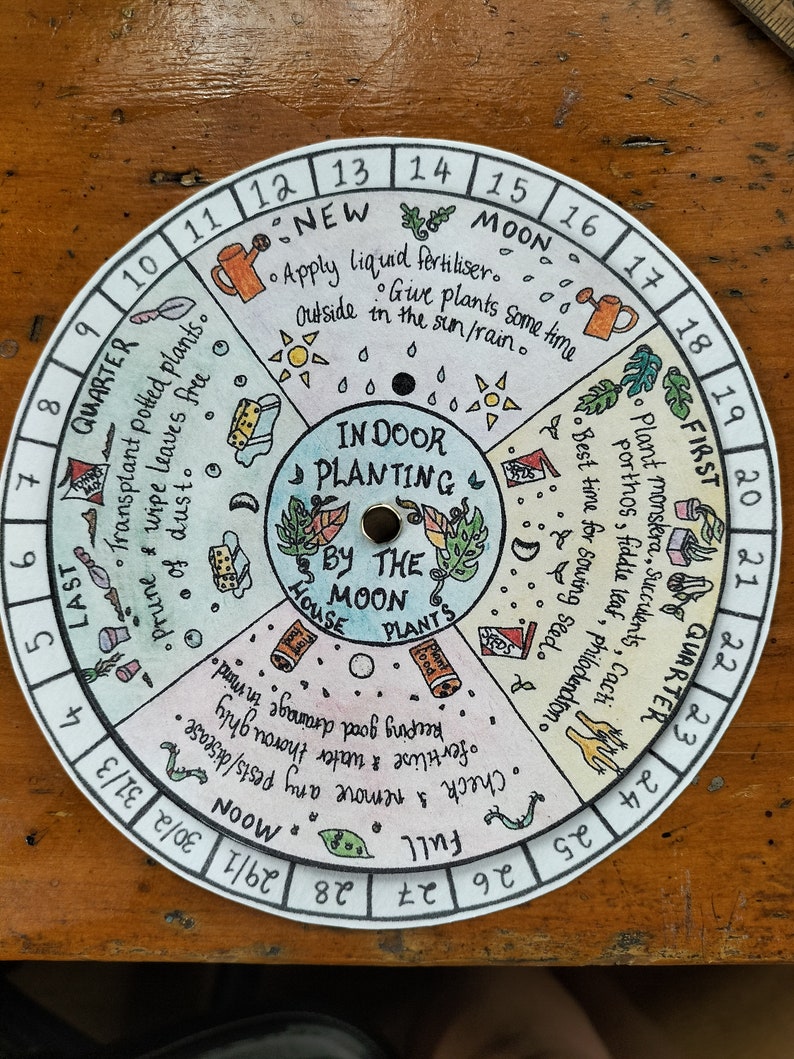 INDOOR
PLANTING
BY THE
MOON
HOUSE PLANTS
NEW MOON
Apply liquid fertiliser.
Give plants some time
outside in the sun/rain.
FIRST QUARTER
Plant monstera, succulents, Cacti
porthos, fiddle leaf, philodendron.
Best time for sowing seed.
SEEDS
SEEDS
FULL MOON
Check & remove any pests/disease.
fertilise & water thoroughly
keeping good drainage in mind.
Plant food
Plant food
LAST QUARTER
Transplant potted plants.
prune & wipe leaves free
of dust.
13
14
15
16
17
18
19
20
21
22
23
24
25
26
27
28
29/1
30/2
31/3
4
5
6
7
8
9
10
11
12